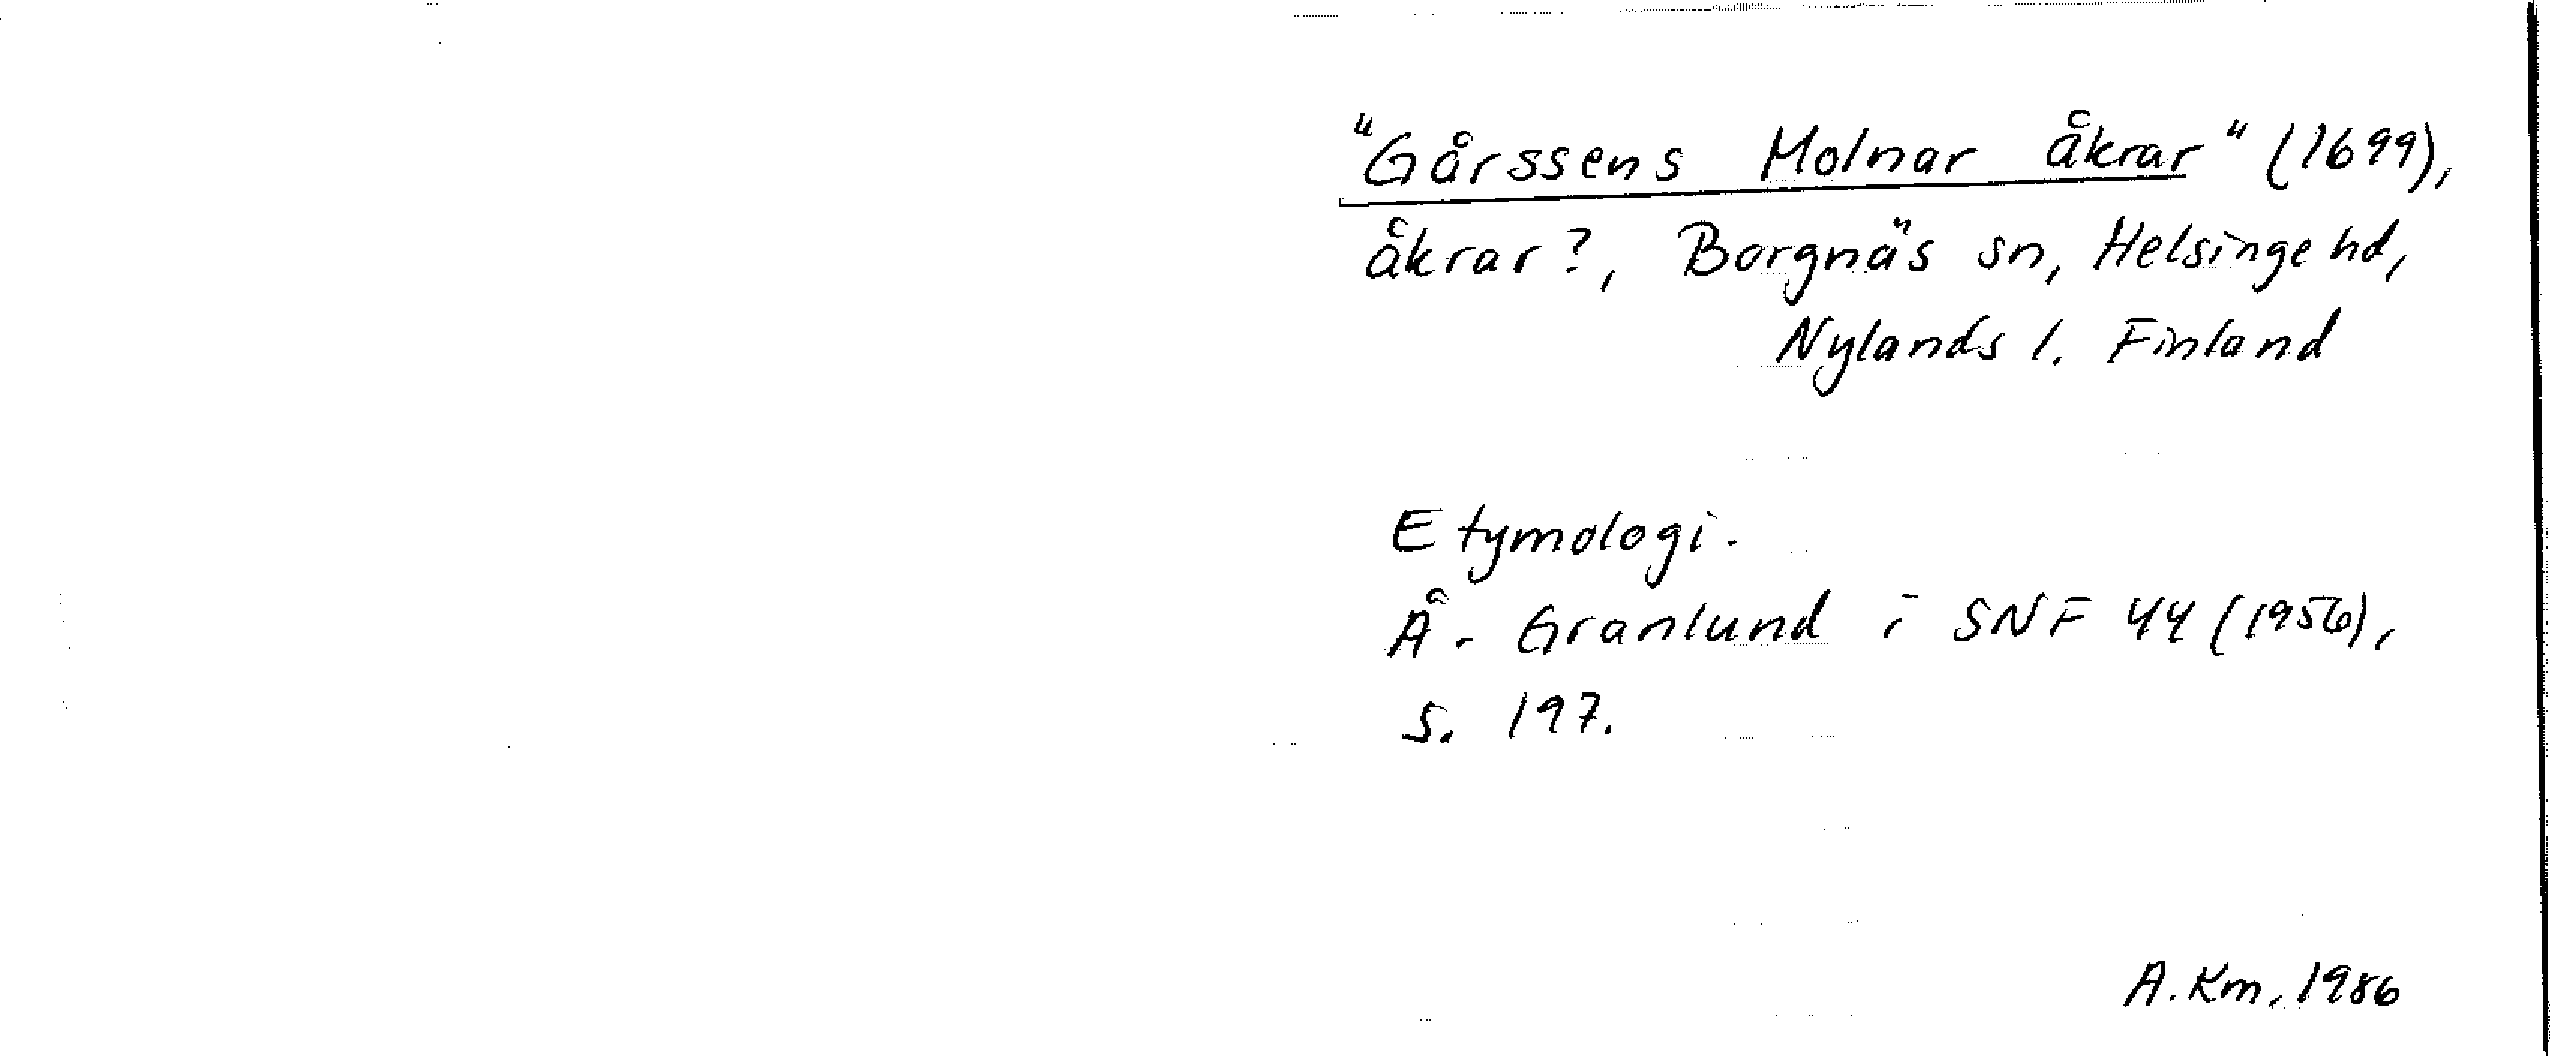 "Gårssens Molnar åkrar" (1699),
åkrar?, Borgnäs sn, Helsinge hd,
Nylands l. Finland
Etymologi.
Å. Granlund i SNF 44 (1956),
s. 197.
A. Km. 1986